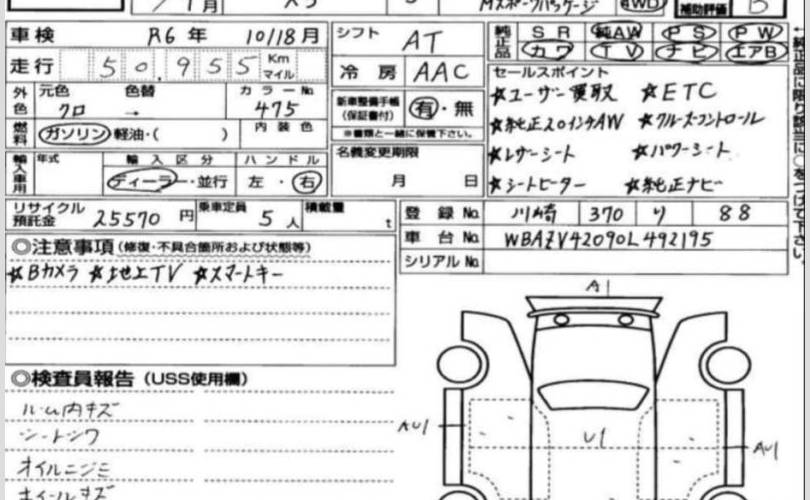 月 Mスポーツパッケージ 4WD 補助評価 B
車検 R6年 10/18月
シフト AT
純正品 SR 純AW PS PW
カワ TV ナビ エアB
走行 50,955 Km マイル
冷房 AAC
セールスポイント
★ユーザー買取 ★ETC
外色 元色 色替 カラーNo.
クロ → 475
新車整備手帳(保証書付) 有・無
※書類と一緒に保管下さい。
★純正20インチAW ★クルーズコントロール
燃料 ガソリン 軽油・( ) 内装色
★レザーシート ★パワーシート
名義変更期限
月 日
輸入車用 年式 輸入区分 ハンドル
ディーラー・並行 左・右
★シートヒーター ★純正ナビ
リサイクル預託金 25570円 乗車定員 5人 積載量 t
登録No. 川崎 370 り 88
車台No. WBAZV42090L492195
シリアルNo.
◎注意事項(修復・不具合箇所および状態等)
★Bカメラ ★地上TV ★スマートキー
A1
◎検査員報告(USS使用欄)
ルーム内キズ
シートシワ
オイルニジミ
ホイールキズ
AU1
U1
AU1